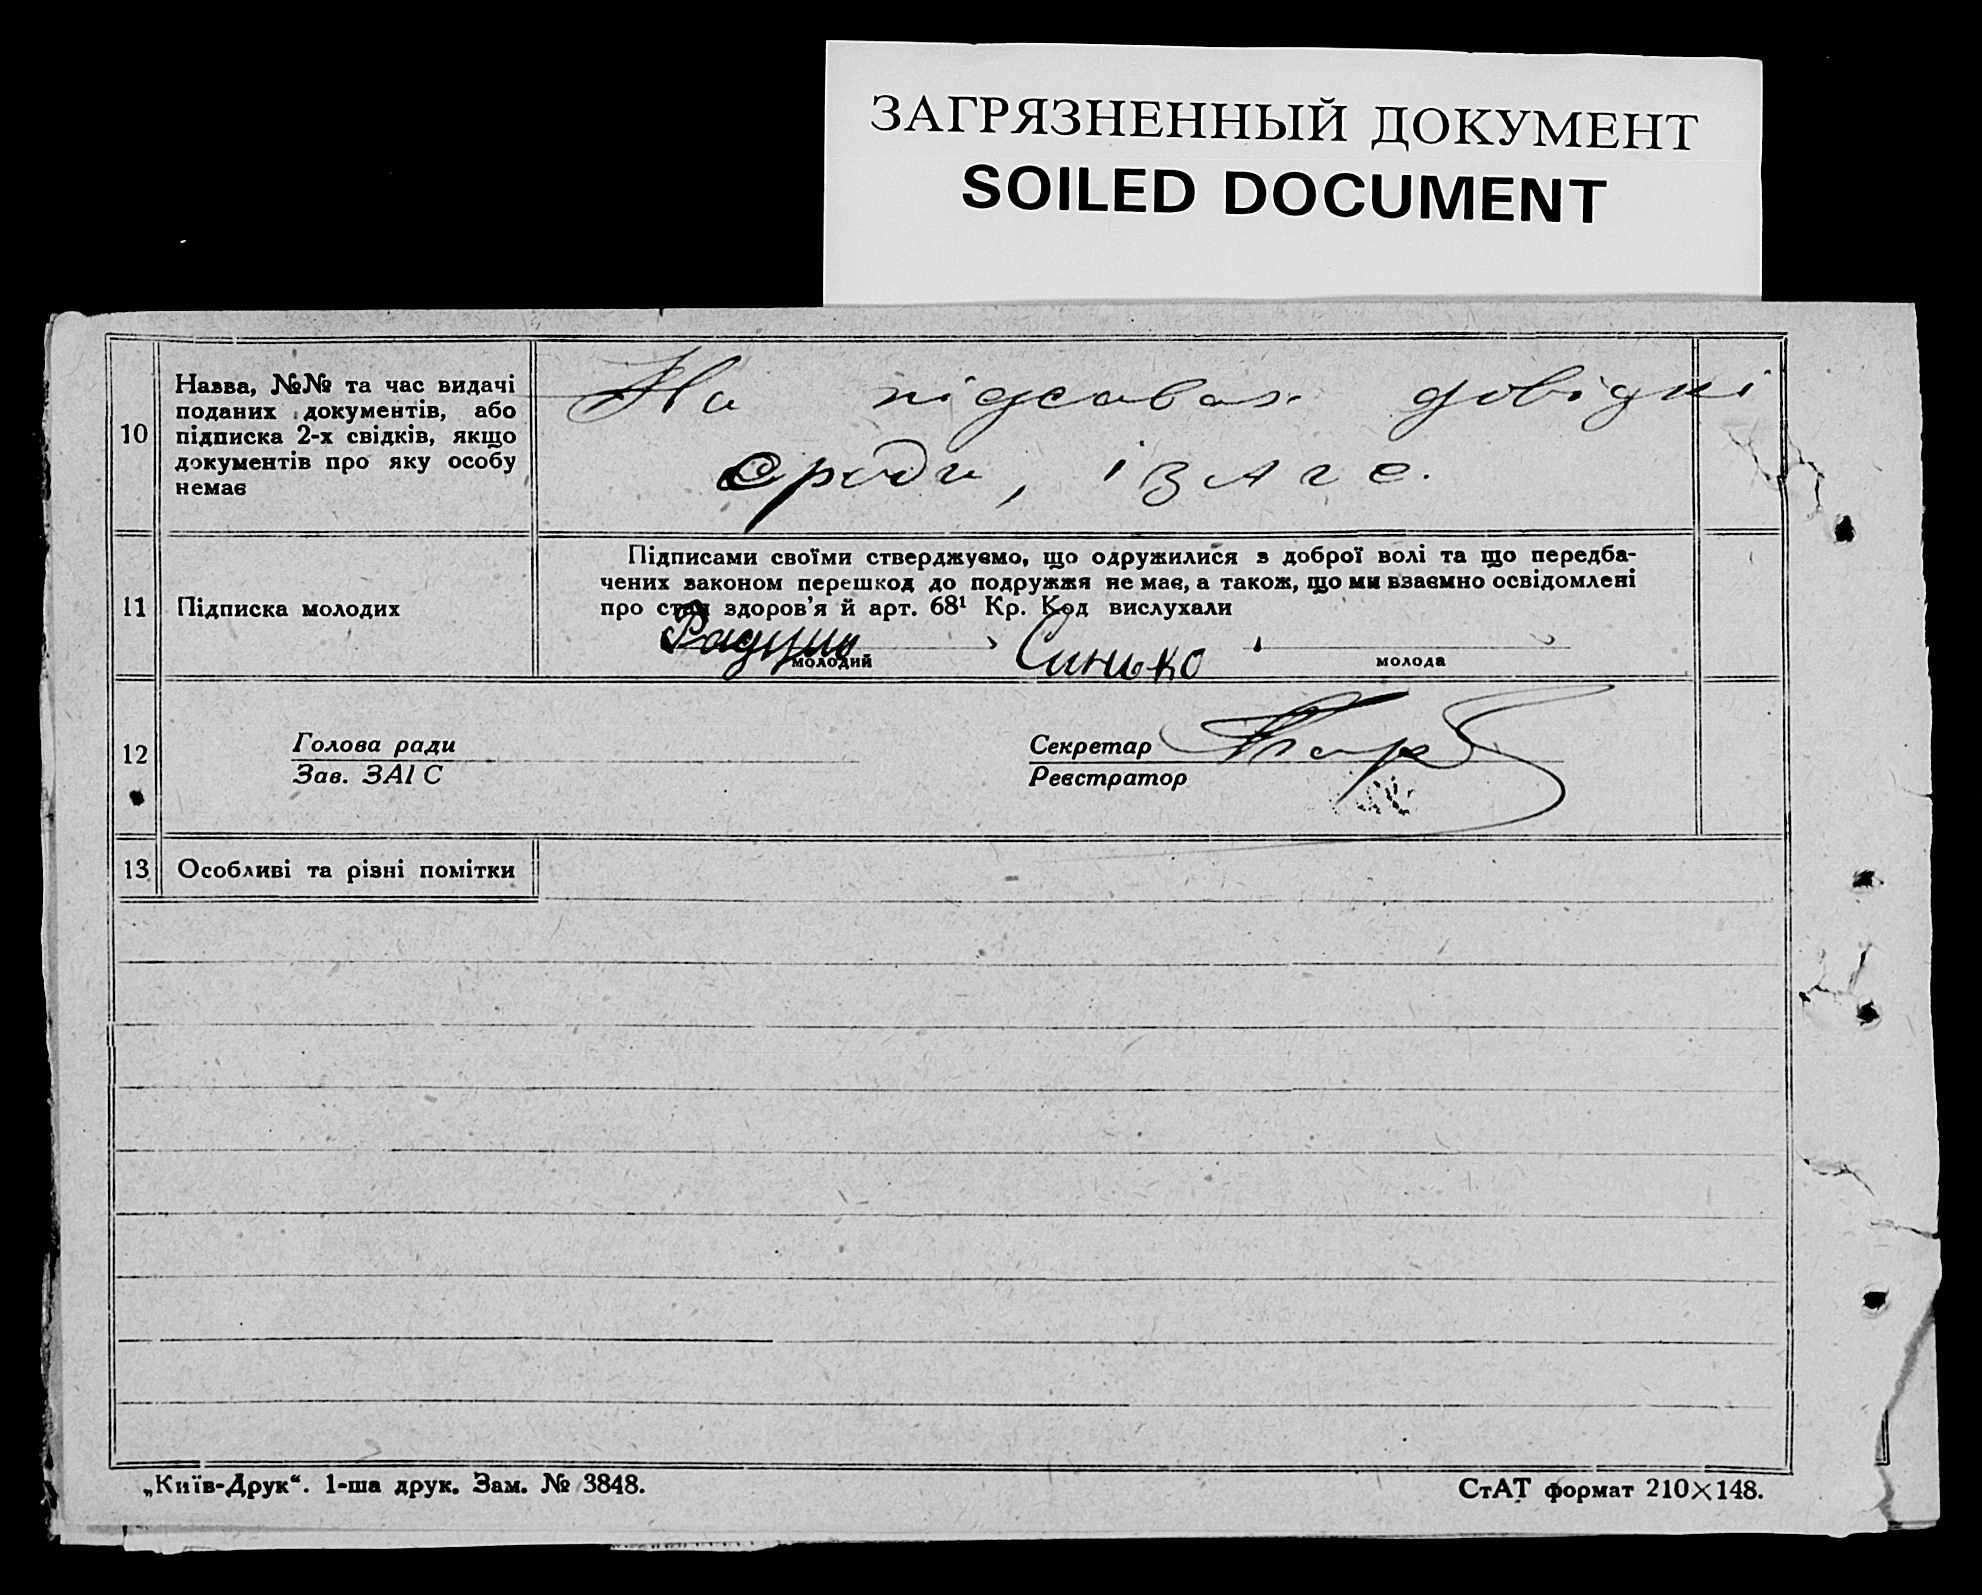 ЗАГРЯЗНЕННЫЙ ДОКУМЕНТ
SOILED DOCUMENT
10
Назва, №№ та час видачі
поданих документів, або
підписка 2-х свідків, якщо
документів про яку особу
немає
На підсавах довідки
с/ради, і ЗАГС.
11
Підписка молодих
Підписами своїми стверджуємо, що одружилися з доброї волі та що передба-
чених законом перешкод до подружжя не має, а також, що ми взаємно освідомлені
про стан здоров'я й арт. 68¹ Кр. Код вислухали
Синько
молодий
молода
12
Голова ради
Зав. ЗАГС
Секретар
Реєстратор
13
Особливі та різні помітки
„Київ-Друк“. 1-ша друк. Зам. № 3848.
СтАТ формат 210×148.